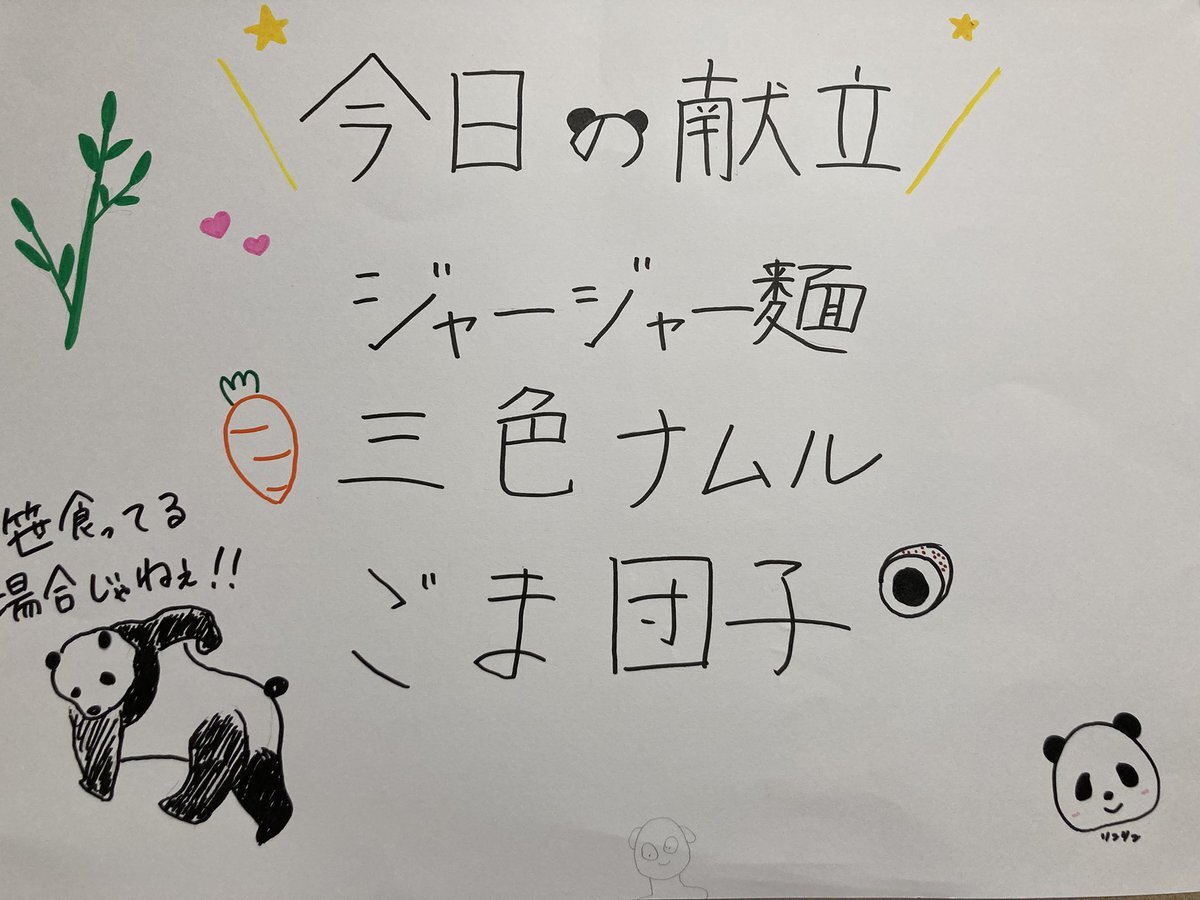 今日の献立
ジャージャー麺
三色ナムル
ごま団子
笹食ってる
場合じゃねぇ!!
リンリン